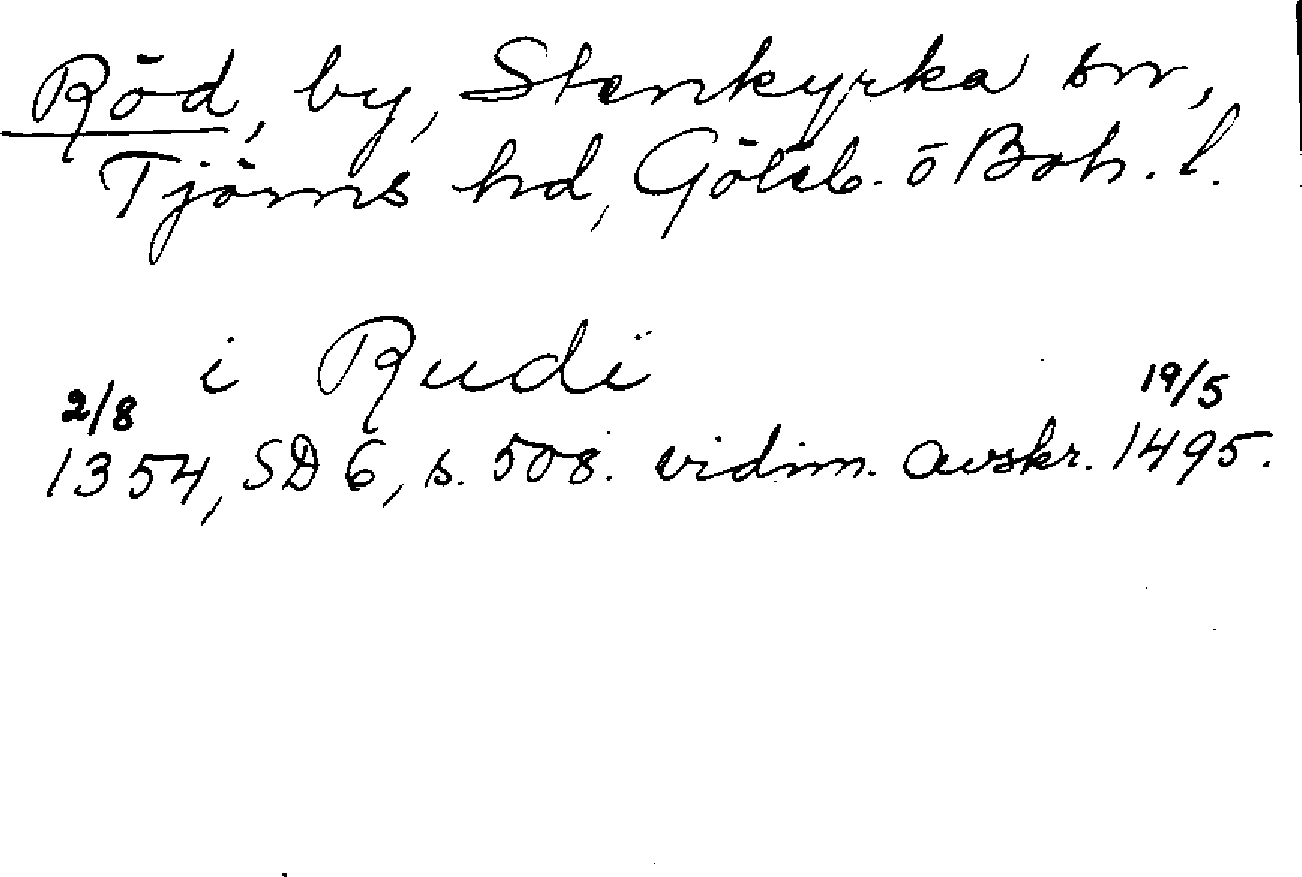 Röd, by, Stenkyrka sn,
Tjörns hd, Göteb. o Boh. l.
i Rudi
2/8 19/5
1354, SD 6, s. 508. vidim. avskr. 1495.